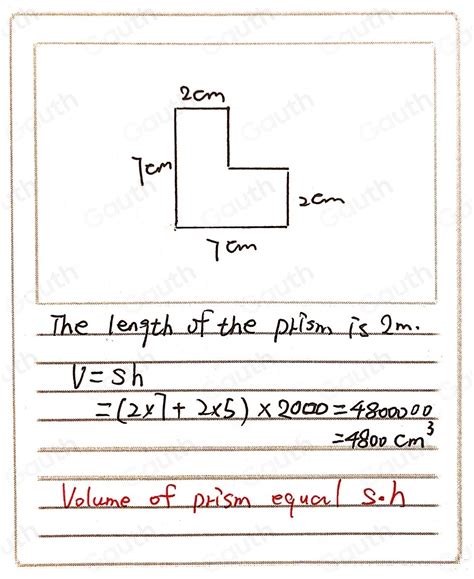 2cm
7cm
2cm
7cm
The length of the prism is 2m.
V=Sh
=(2×7+2×5)×2000=4800000
=4800 cm³
Volume of prism equal s.h